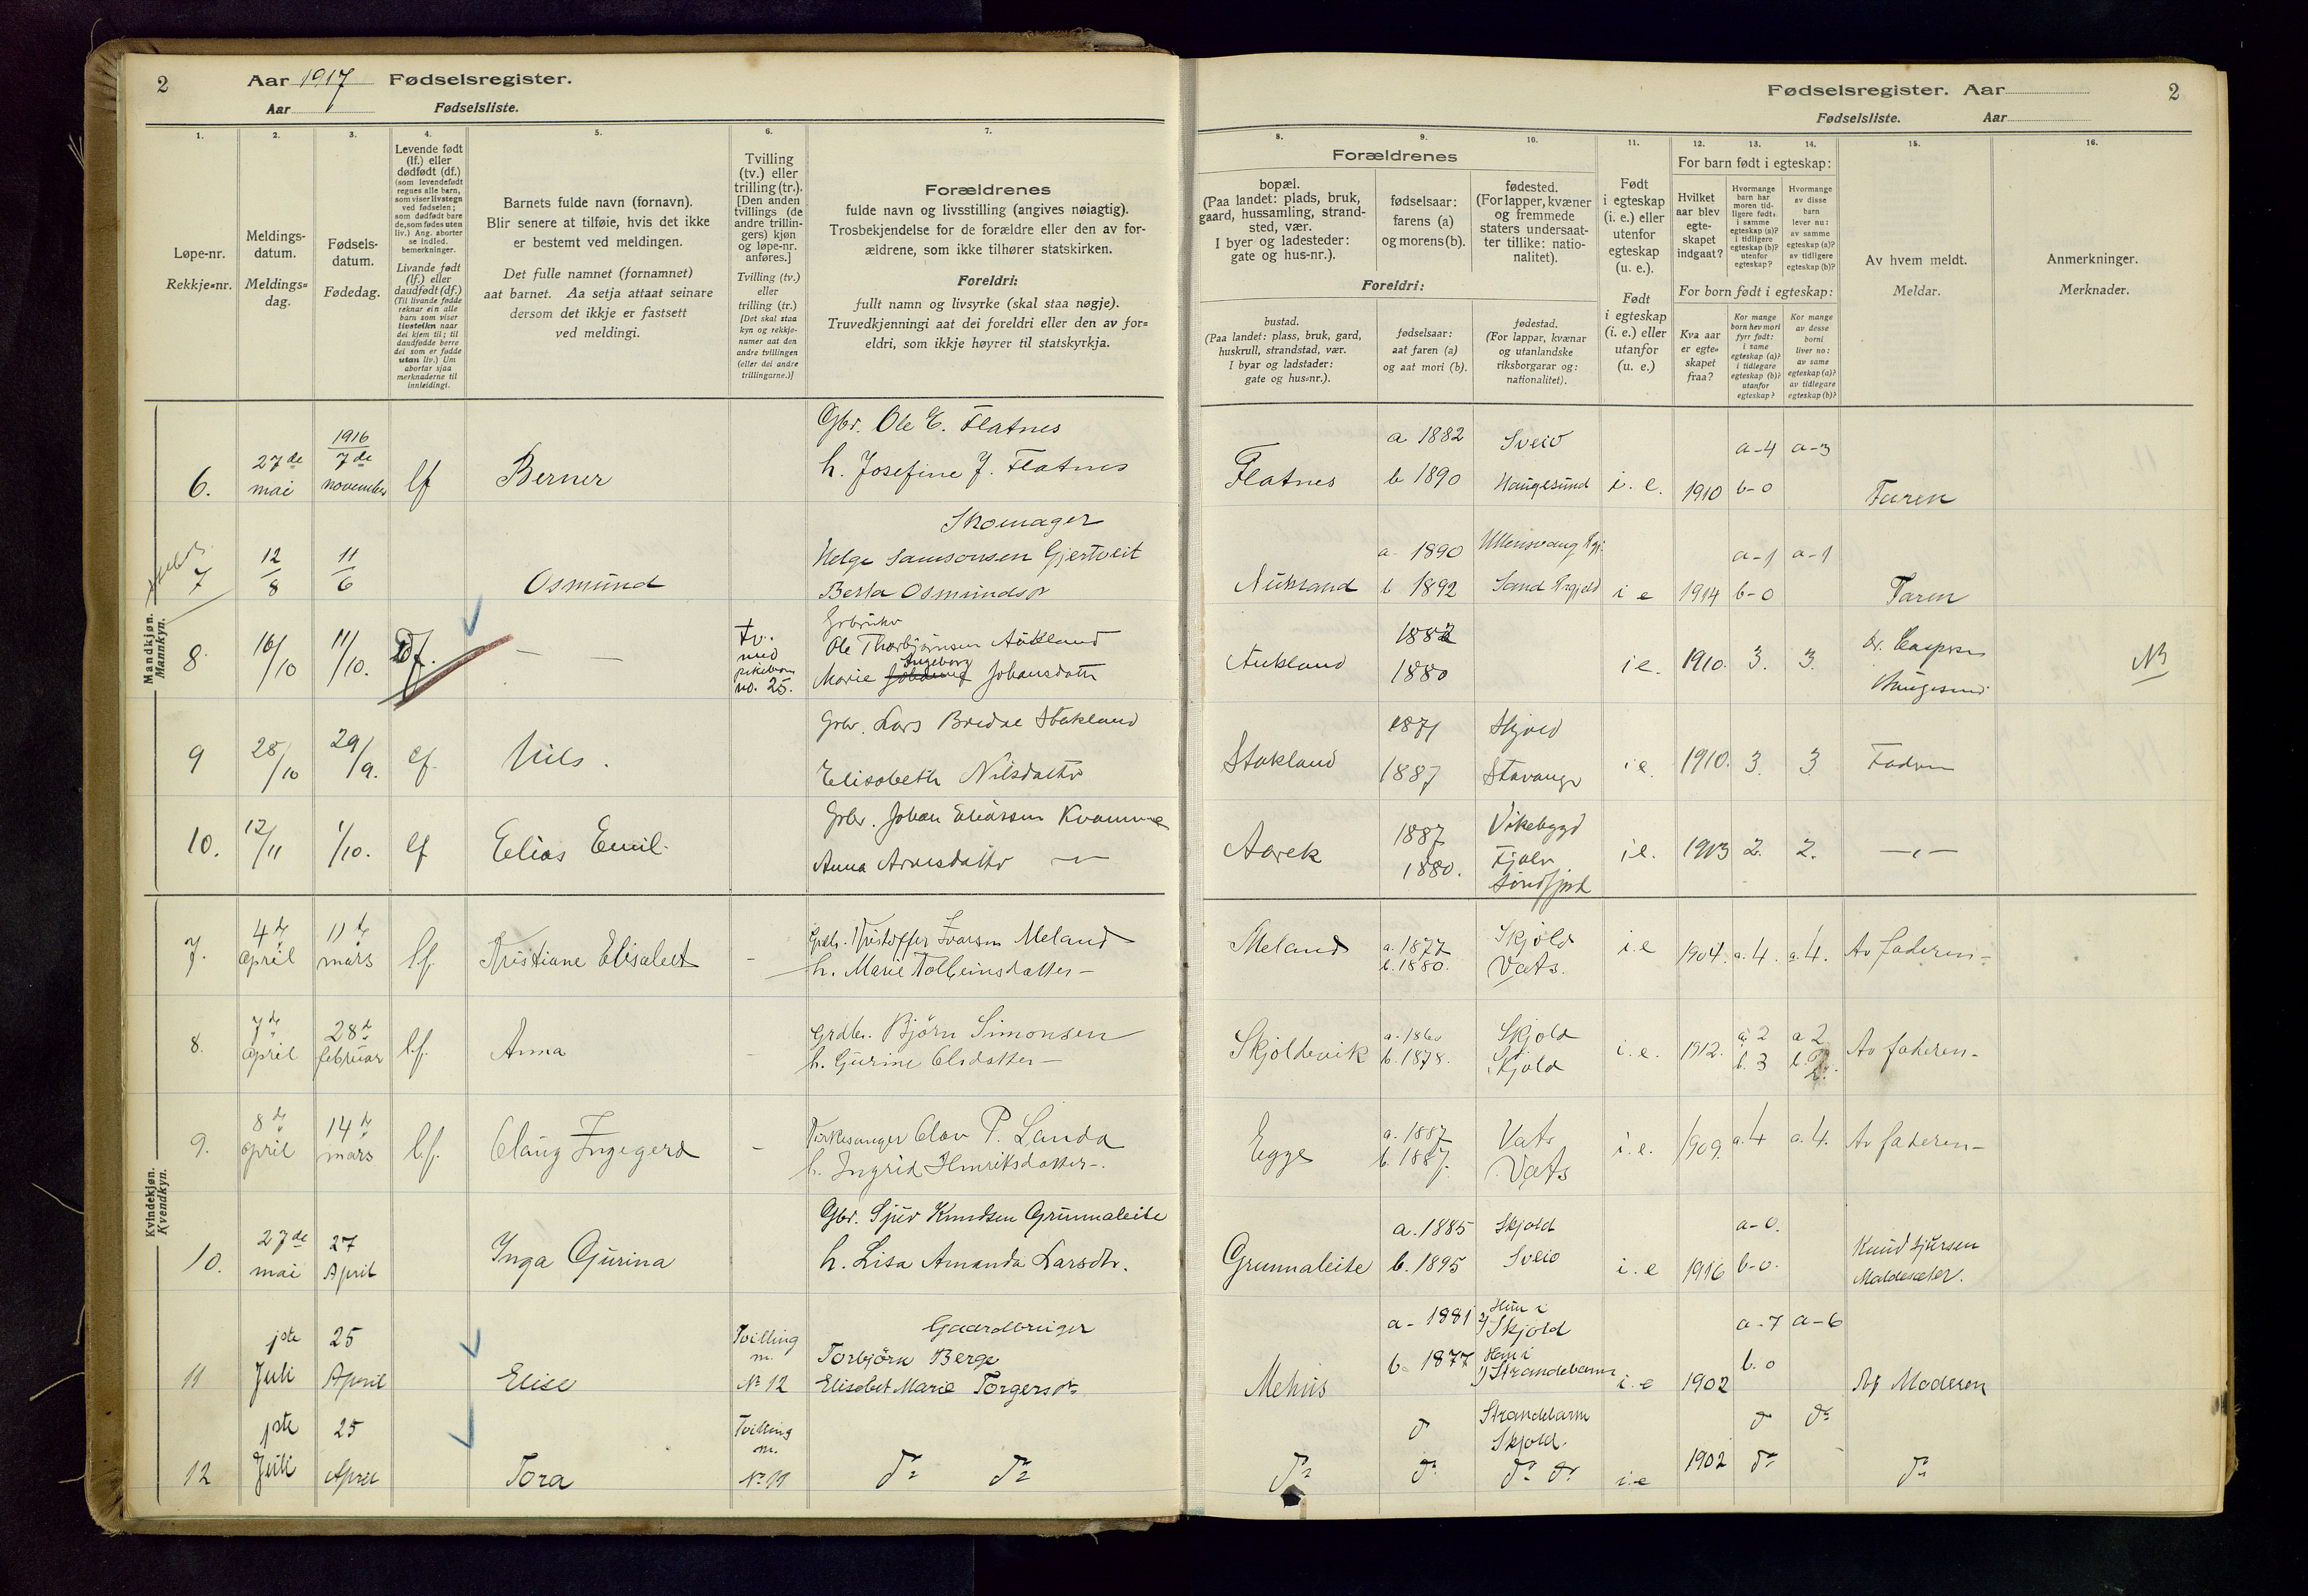 2
Aar 1917 Fødselsregister.
Aar Fødselsliste.
1.
2.
3.
4.
5.
6.
7.
Løpe-nr.
Rekkje=nr.
Meldings-
datum.
Meldings=
dag.
Fødsels-
datum.
Fødedag.
Levende født
(lf.) eller
dødfødt (df.)
(som levendefødt
regnes alle barn,
som viser livstegn
ved fødselen;
som dødfødt bare
de, som fødes uten
liv.) Ang. aborter
se indled.
bemerkninger.
Livande født
(lf.) eller
daudfødt (df.)
(Til livande fødde
reknar ein alle
barn som viser
livsteikn naar
dei kjem til; til
daudfødde berre
dei som er fødde
utan liv.) Um
abortar sjaa
merknaderne til
innleidingi.
Barnets fulde navn (fornavn).
Blir senere at tilføie, hvis det ikke
er bestemt ved meldingen.
Det fulle namnet (fornamnet)
aat barnet. Aa setja attaat seinare
dersom det ikkje er fastsett
ved meldingi.
Tvilling
(tv.) eller
trilling (tr.).
[Den anden
tvillings (de
andre trillin-
gers) kjøn
og løpe-nr.
anføres.]
Tvilling (tv.)
eller
trilling (tr.)
[Det skal staa
kyn og rekkje-
numer aat den
andre tvillingen
(eller dei andre
trillingarne.)]
Forældrenes
fulde navn og livsstilling (angives nøiagtig).
Trosbekjendelse for de forældre eller den av for-
ældrene, som ikke tilhører statskirken.
Foreldri:
fullt namn og livsyrke (skal staa nøgje).
Truvedkjenningi aat dei foreldri eller den av for=
eldri, som ikkje høyrer til statskyrkja.
Fødselsregister. Aar
2
Fødselsliste. Aar
8.
9.
10.
11.
12.
13.
14.
15.
16.
Forældrenes
bopæl.
(Paa landet: plads, bruk,
gaard, hussamling, strand-
sted, vær.
I byer og ladesteder:
gate og hus-nr.).
fødselsaar:
farens (a)
og morens (b).
fødested.
(For lapper, kvæner
og fremmede
staters undersaat-
ter tillike: natio-
nalitet).
Foreldri:
bustad.
(Paa landet: plass, bruk, gard,
huskrull, strandstad, vær.
I byar og ladstader:
gate og hus=nr.).
fødselsaar:
aat faren (a)
og aat mori (b).
fødestad.
(For lappar, kvænar
og utanlandske
riksborgarar og:
nationalitet).
Født
i egteskap
(i. e.) eller
utenfor
egteskap
(u. e.).
Født
i egteskap
(i. e.) eller
utanfor
(u. e.)
For barn født i egteskap:
Hvilket
aar blev
egte-
skapet
indgaat?
Hvormange
barn har
moren tid-
ligere født:
i samme
egteskap (a)?
i tidligere
egteskap (b)?
utenfor
egteskap?
Hvormange
av disse
barn
lever nu:
av samme
egteskap (a)?
av tidligere
egteskap (b)?
For born født i egteskap:
Kva aar
er egte=
skapet
fraa?
Kor mange
born hev mori
fyrr født:
i same
egteskap (a)?
i tidlegare
egteskap (b)?
utanfor
egteskap?
Kor mange
av desse
borni
liver no:
av same
egteskap (a)?
av tidlegare
egteskap (b)?
Av hvem meldt.
Meldar.
Anmerkninger.
Merknader.
Mandkjøn.
Mannkyn.
6. 27de mai 1916 7de november lf Berner
Gbr. Ole E. Flatnes
h. Josefine J. Flatnes
Flatnes a 1882 b 1890 Sveio Haugesund i. e. 1910 a-4 b-0 a-3 Faren
7 12/8 11/6 Osmund
Skomager
Helge Samsonsen Gjertveit
Berta Osmundsdr
a 1890 b 1892 Ullensvang i e 1914 a-1 b-0 a-1 Faren
8. 16/10 11/10. Df. — — tv. med pikebarn no. 25.
Ole Thorbjørnsen Aukland
Marie Ingeborg Johansdattr
Aukland 1882 1880 i e. 1910. 3. 3. Haugesund
9 28/10 29/9. lf. Nils.
Grbr. Lars Bredal Stokland
Elisabeth Nilsdattr
Stokland 1871 1887 Skjold Stavanger i e. 1910. 3. 3.
10. 12/11 1/10. lf Elias Emil.
Grbr. Johan Eliassen Kvamme
Anna Arnesdattr —"—
Aarek 1887 1880. Vikebygd Søndfjord i e. 1913 2. 2. —"—
Kvindekjøn.
Kvendkyn.
7. 4de april 11te mars l.f. Kristiane Elisabet -
Grdbr. Kristoffer Ivarsen Meland
h. Marie Tolleinsdatter-
Meland a. 1877 b. 1880. Skjold Vats. i.e 1904. a. 4. a. 4. Av faderen-
8. 7de april 28de februar l.f. Anna -
Grdbr. Bjørn Simonsen
h. Gurine Olsdatter-
Skjoldevik a. 1860 b. 1878. Skjold Skjold i. e. 1912. a. 2 b. 3 a 2 Av faderen-
9. 8de april 14de mars l.f. Olaug Ingegerd -
Kirkesanger Olav P. Landa
h. Ingrid Henriksdatter-.
Egge a. 1887 b. 1887. Vats Vats i. e. 1909. a. 4 a. 4. Av faderen-
10. 27de mai 27 April Inga Gurina
Gbr. Sjur Knudsen Grunnaleite
h. Lisa Amanda Larsdtr.
Grunnaleite a. 1885 b. 1895 Skjold Sveio i. e 1916 a-0. b-0. Knud Sjursen
11 1ste Juli 25 April Elise Tvilling m. No 12
Gaardbruger
Torbjörn Berge
Elisabet Marie Torgersdr
Mehus a- 1881 b. 1877 2) Skjold 1) Strandebarm i. e 1902 a-7 b. 0 a-6 Af Moderen
12 1ste Juli 25 April Tora Tvilling m. No 11
do do
do do do Strandebarm Skjold. do do i. e 1902 do do do do